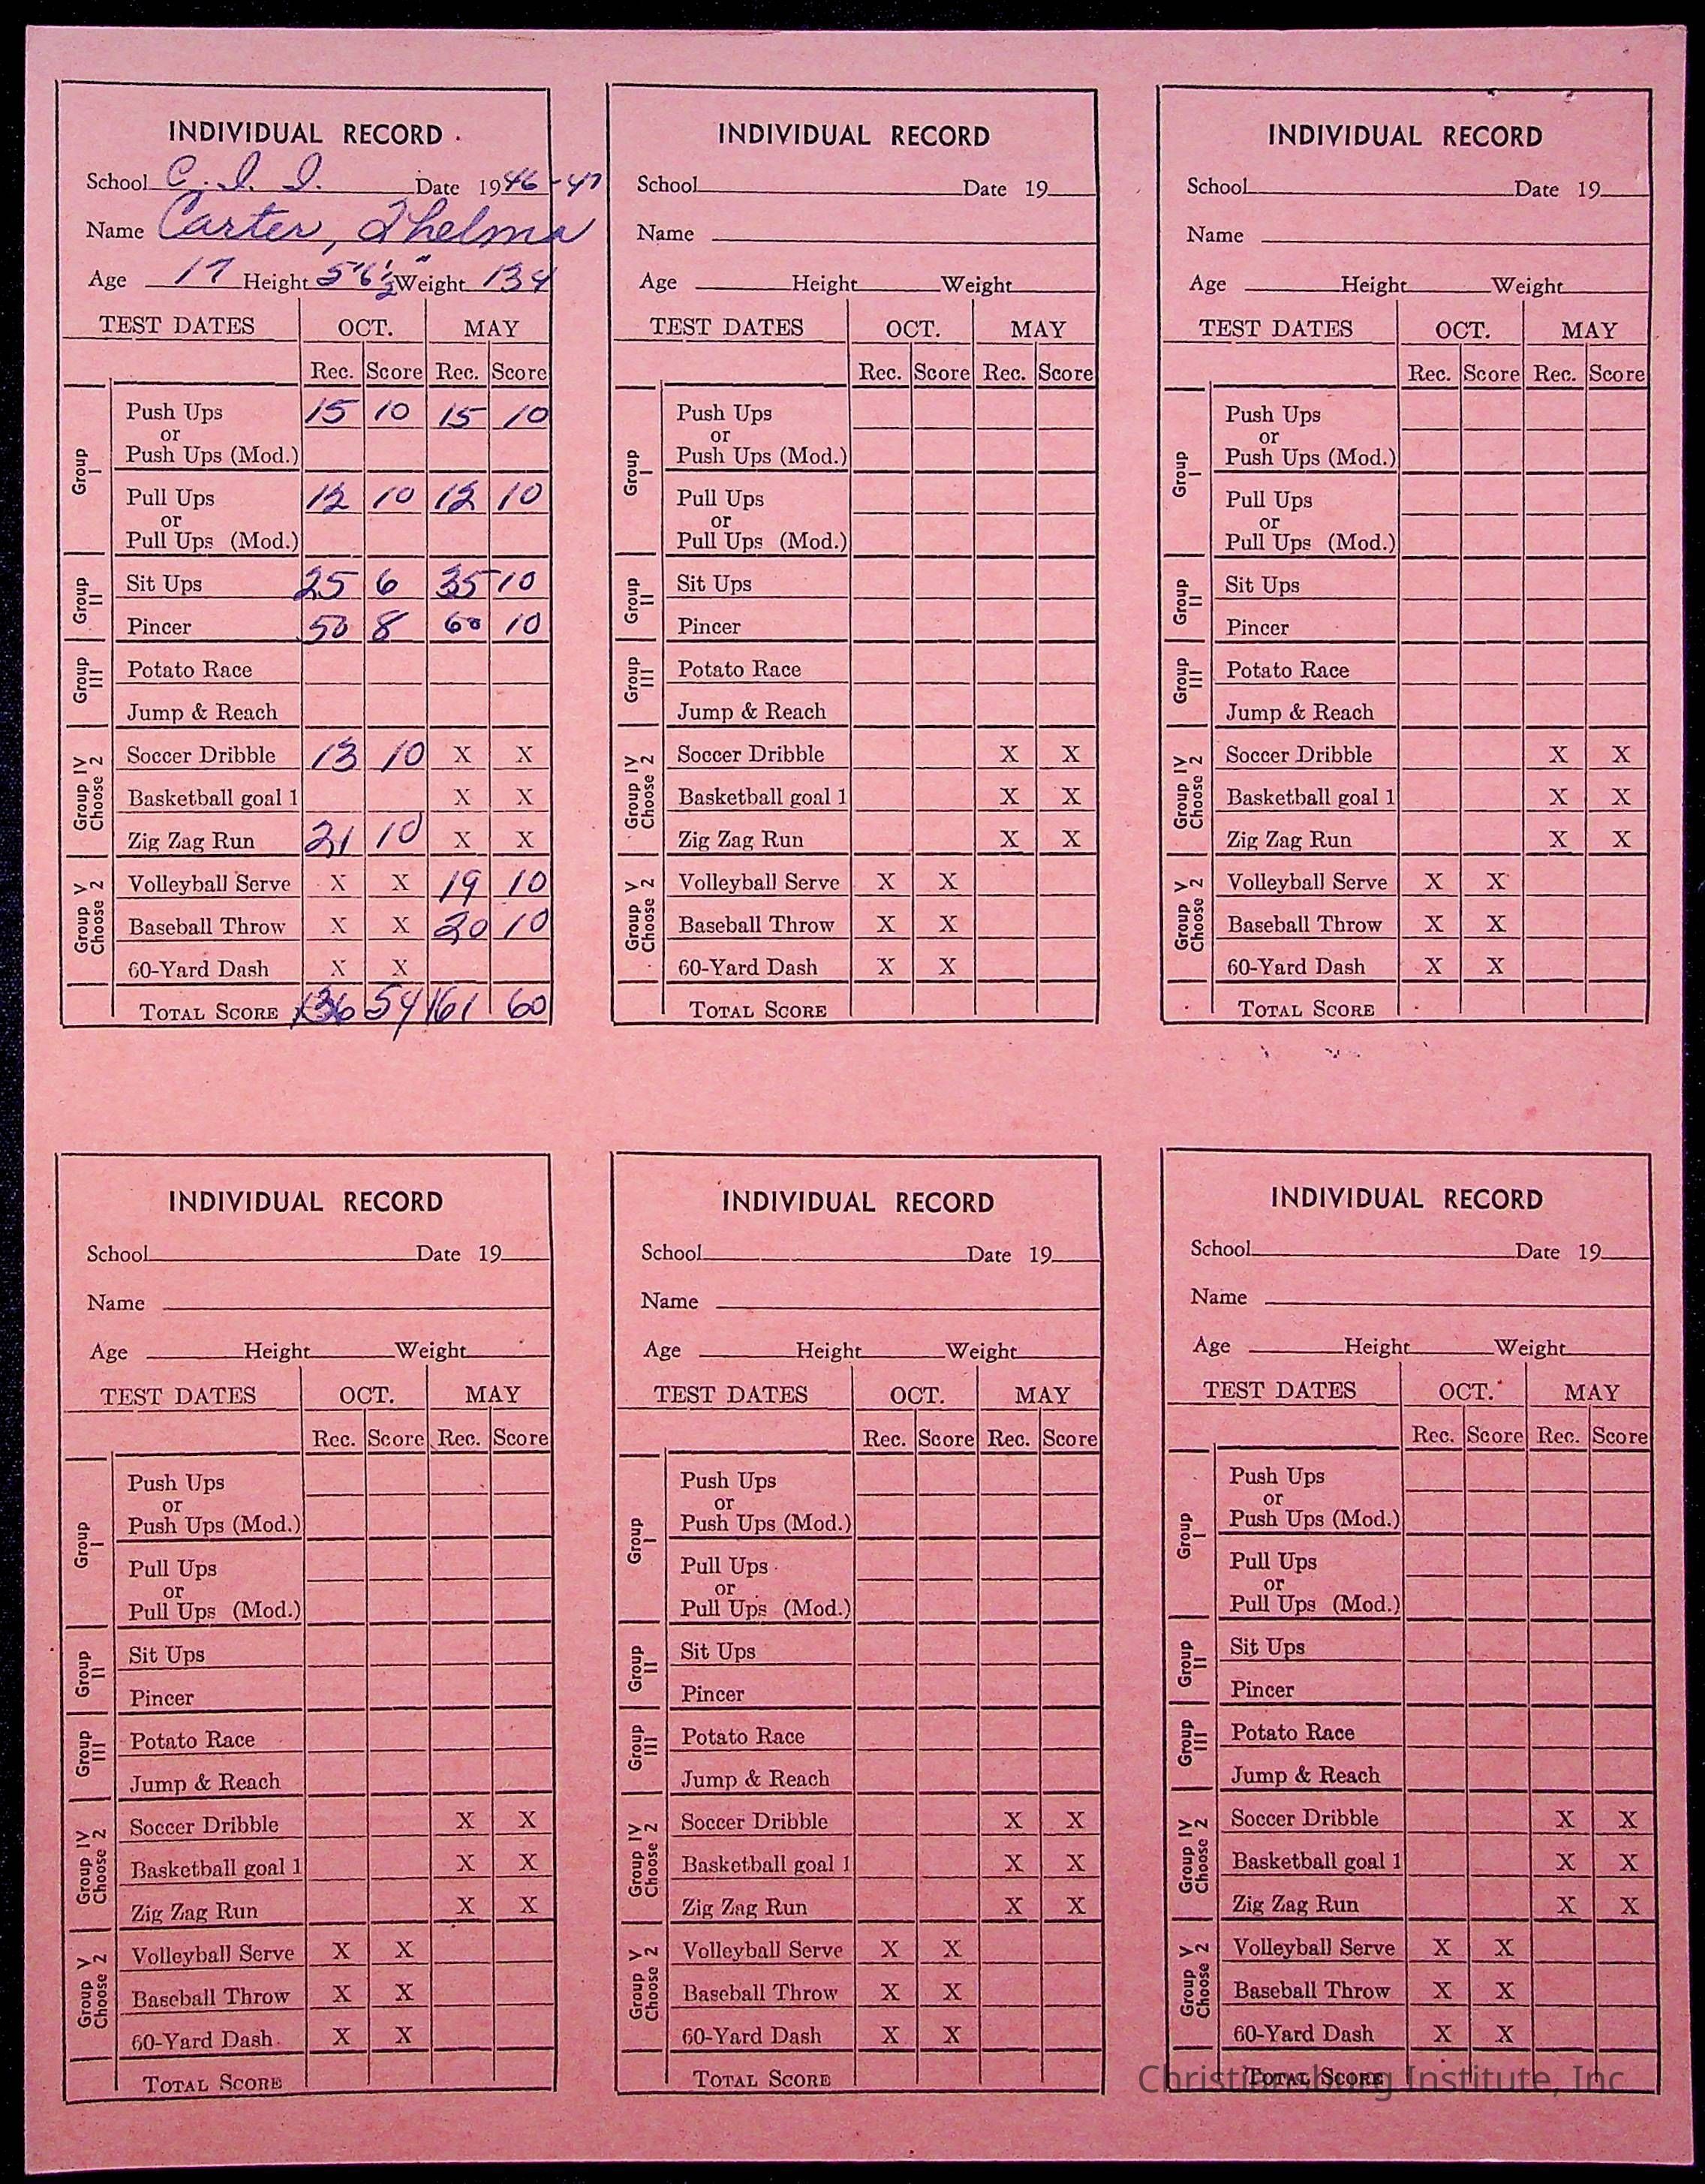 INDIVIDUAL RECORD
School C. I. I. Date 1946-47
Name Carter, Thelma
Age 17 Height 5'6½" Weight 134
TEST DATES OCT. MAY
Rec. Score Rec. Score
Group I
Push Ups 15 10 15 10
or
Push Ups (Mod.)
Pull Ups 12 10 12 10
or
Pull Ups (Mod.)
Group II
Sit Ups 25 6 35 10
Pincer 50 8 60 10
Group III
Potato Race
Jump & Reach
Group IV Choose 2
Soccer Dribble 13 10 X X
Basketball goal 1 X X
Zig Zag Run 21 10 X X
Group V Choose 2
Volleyball Serve X X 19 10
Baseball Throw X X 20 10
60-Yard Dash X X
TOTAL SCORE 136 54 161 60
INDIVIDUAL RECORD
School Date 19
Name
Age Height Weight
TEST DATES OCT. MAY
Rec. Score Rec. Score
Group I
Push Ups
or
Push Ups (Mod.)
Pull Ups
or
Pull Ups (Mod.)
Group II
Sit Ups
Pincer
Group III
Potato Race
Jump & Reach
Group IV Choose 2
Soccer Dribble X X
Basketball goal 1 X X
Zig Zag Run X X
Group V Choose 2
Volleyball Serve X X
Baseball Throw X X
60-Yard Dash X X
TOTAL SCORE
INDIVIDUAL RECORD
School Date 19
Name
Age Height Weight
TEST DATES OCT. MAY
Rec. Score Rec. Score
Group I
Push Ups
or
Push Ups (Mod.)
Pull Ups
or
Pull Ups (Mod.)
Group II
Sit Ups
Pincer
Group III
Potato Race
Jump & Reach
Group IV Choose 2
Soccer Dribble X X
Basketball goal 1 X X
Zig Zag Run X X
Group V Choose 2
Volleyball Serve X X
Baseball Throw X X
60-Yard Dash X X
TOTAL SCORE
INDIVIDUAL RECORD
School Date 19
Name
Age Height Weight
TEST DATES OCT. MAY
Rec. Score Rec. Score
Group I
Push Ups
or
Push Ups (Mod.)
Pull Ups
or
Pull Ups (Mod.)
Group II
Sit Ups
Pincer
Group III
Potato Race
Jump & Reach
Group IV Choose 2
Soccer Dribble X X
Basketball goal 1 X X
Zig Zag Run X X
Group V Choose 2
Volleyball Serve X X
Baseball Throw X X
60-Yard Dash X X
TOTAL SCORE
INDIVIDUAL RECORD
School Date 19
Name
Age Height Weight
TEST DATES OCT. MAY
Rec. Score Rec. Score
Group I
Push Ups
or
Push Ups (Mod.)
Pull Ups
or
Pull Ups (Mod.)
Group II
Sit Ups
Pincer
Group III
Potato Race
Jump & Reach
Group IV Choose 2
Soccer Dribble X X
Basketball goal 1 X X
Zig Zag Run X X
Group V Choose 2
Volleyball Serve X X
Baseball Throw X X
60-Yard Dash X X
TOTAL SCORE
INDIVIDUAL RECORD
School Date 19
Name
Age Height Weight
TEST DATES OCT. MAY
Rec. Score Rec. Score
Group I
Push Ups
or
Push Ups (Mod.)
Pull Ups
or
Pull Ups (Mod.)
Group II
Sit Ups
Pincer
Group III
Potato Race
Jump & Reach
Group IV Choose 2
Soccer Dribble X X
Basketball goal 1 X X
Zig Zag Run X X
Group V Choose 2
Volleyball Serve X X
Baseball Throw X X
60-Yard Dash X X
TOTAL SCORE
Christiansburg Institute, Inc